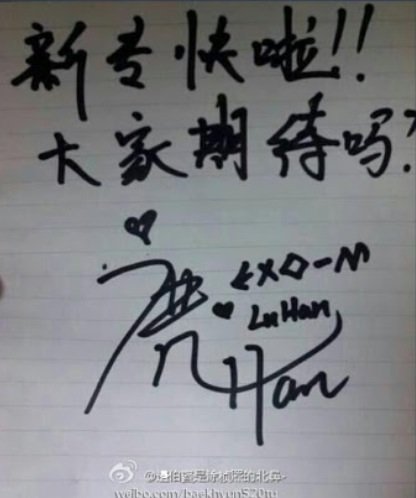 新专快啦!!
大家期待吗?
EXO-M
LuHan
鹿Han
weibo.com/baekhyun520tu